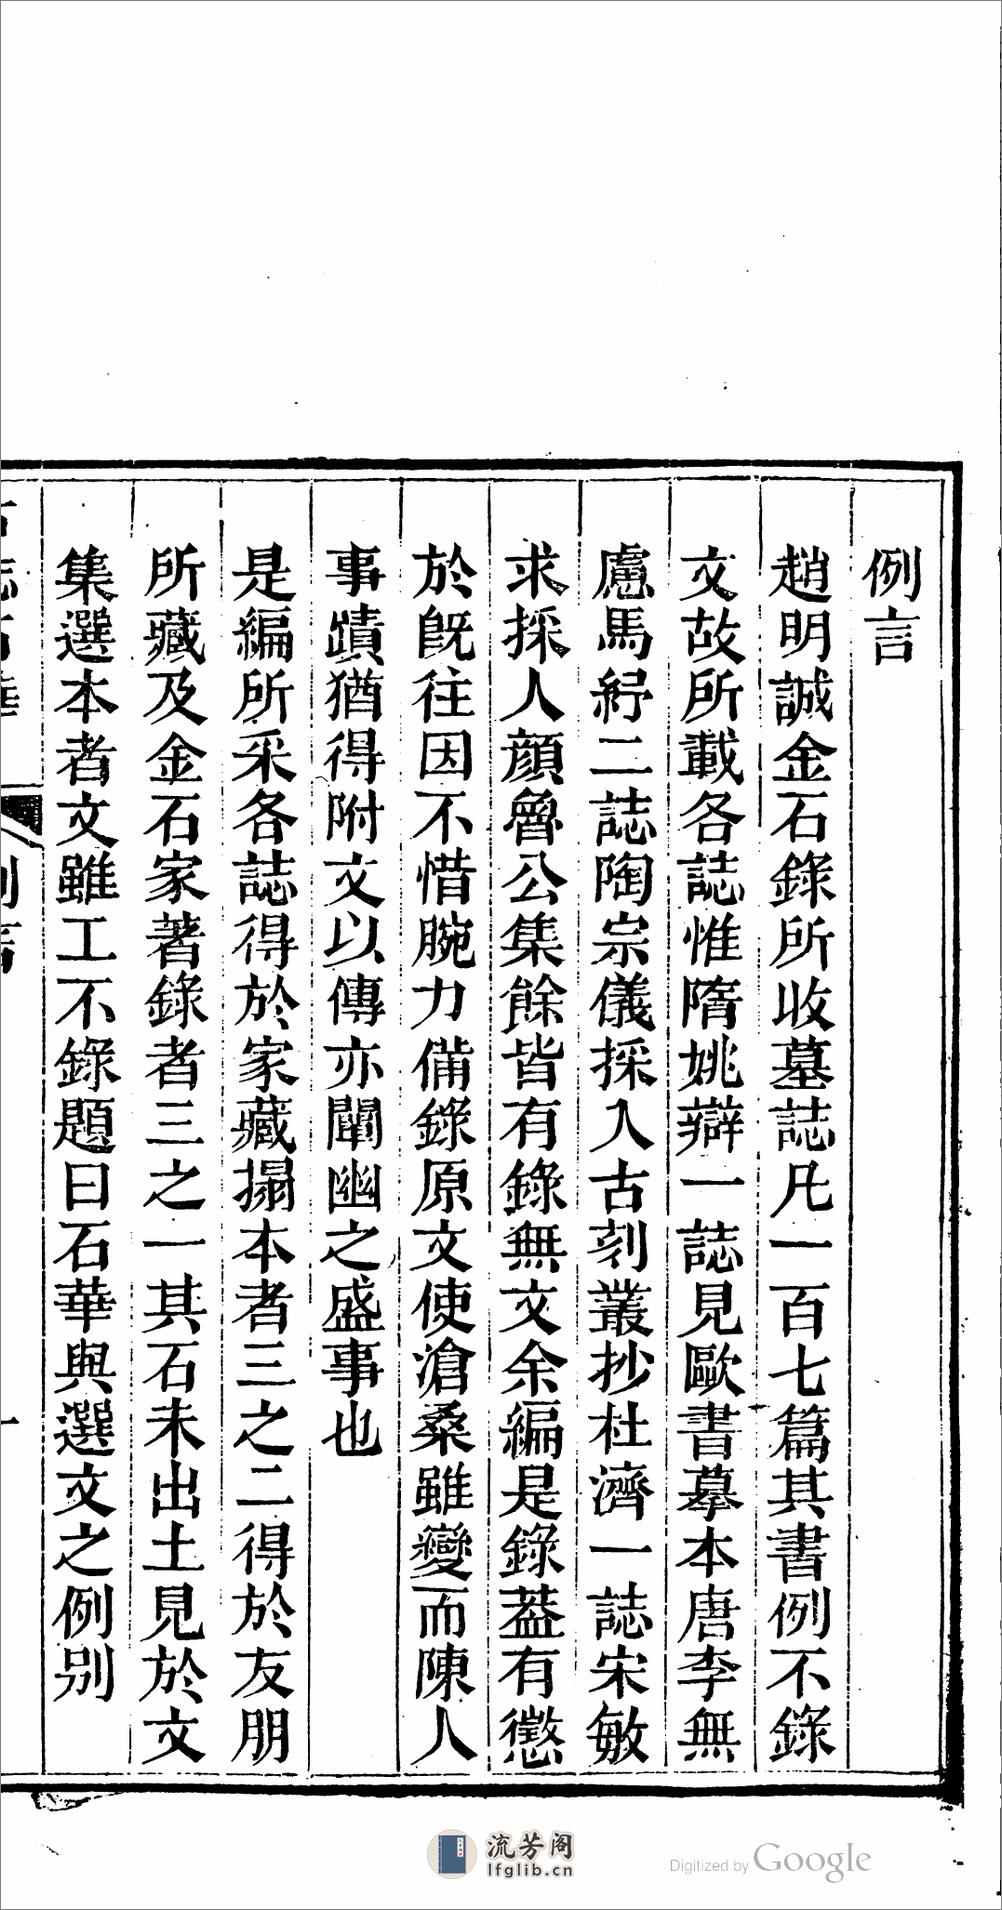 例言
趙明誠金石錄所收墓誌凡一百七篇其書例不錄
文故所載各誌惟隋姚辯一誌見歐書摹本唐李無
慮馬紓二誌陶宗儀採入古刻叢抄杜濟一誌宋敏
求採人顏魯公集餘皆有錄無文余編是錄葢有懲
於旣往因不惜腕力備錄原文使滄桑雖變而陳人
事蹟猶得附文以傳亦闡幽之盛事也
是編所采各誌得於家藏搨本者三之二得於友朋
所藏及金石家著錄者三之一其石未出土見於文
集選本者文雖工不錄題曰石華與選文之例别
流芳阁
lfglib.cn
Digitized by Google